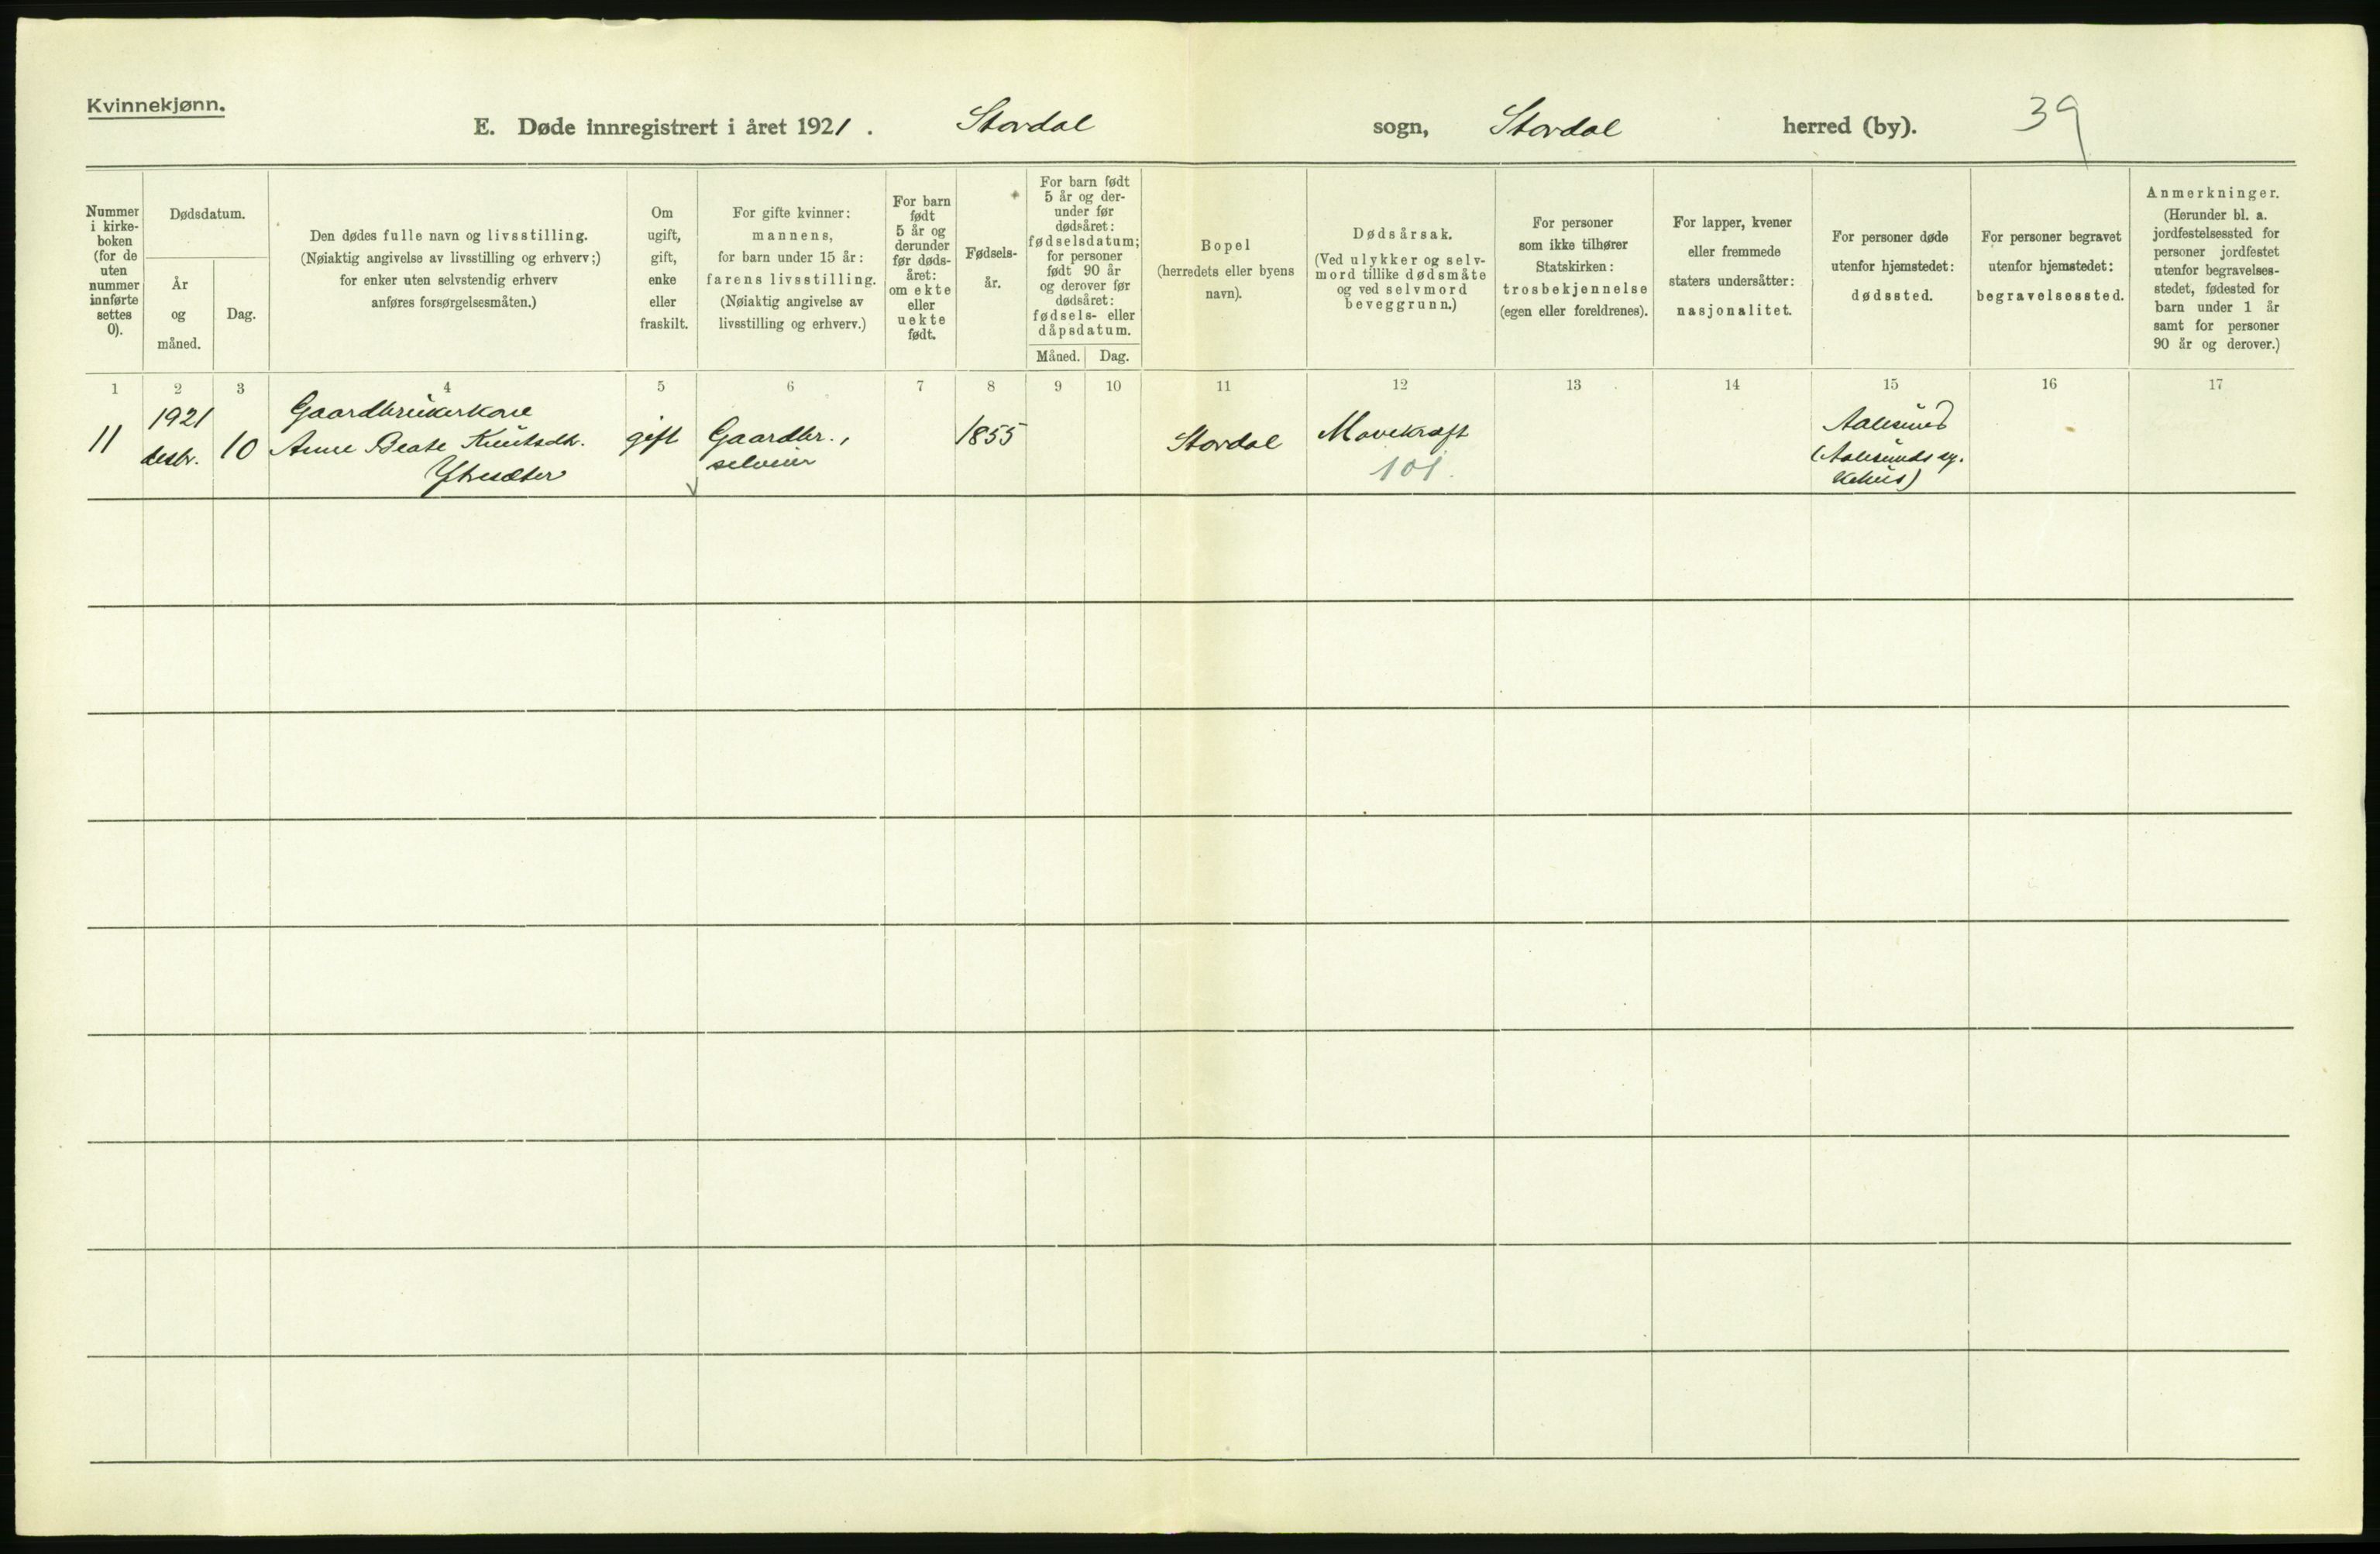 Kvinnekjønn.
E. Døde innregistrert i året 1921. Stordal sogn, Stordal herred (by). 39
Nummer
i kirke-
boken
(for de
uten
nummer
innførte
settes
0).
Dødsdatum.
År
og
måned.
Dag.
Den dødes fulle navn og livsstilling.
(Nøiaktig angivelse av livsstilling og erhverv;)
for enker uten selvstendig erhverv
anføres forsørgelsesmåten.)
Om
ugift,
gift,
enke
eller
fraskilt.
For gifte kvinner:
mannens,
for barn under 15 år:
farens livsstilling.
(Nøiaktig angivelse av
livsstilling og erhverv.)
For barn
født
5 år og
derunder
før døds-
året:
om ekte
eller
uekte
født.
Fødsels-
år.
For barn født
5 år og der-
under før
dødsåret:
fødselsdatum;
for personer
født 90 år
og derover før
dødsåret:
fødsels- eller
dåpsdatum.
Måned. Dag.
Bopel
(herredets eller byens
navn).
Dødsårsak.
(Ved ulykker og selv-
mord tillike dødsmåte
og ved selvmord
beveggrunn.)
For personer
som ikke tilhører
Statskirken:
trosbekjennelse
(egen eller foreldrenes).
For lapper, kvener
eller fremmede
staters undersåtter:
nasjonalitet.
For personer døde
utenfor hjemstedet:
dødssted.
For personer begravet
utenfor hjemstedet:
begravelsessted.
Anmerkninger.
(Herunder bl. a.
jordfestelsessted for
personer jordfestet
utenfor begravelses-
stedet, fødested for
barn under 1 år
samt for personer
90 år og derover.)
1 2 3 4 5 6 7 8 9 10 11 12 13 14 15 16 17
11
1921
desbr.
10
Gaardbrukerkone
Anne Beate Knutsdtr.
Ytresæter
gift
Gaardbr.,
selveier
1855
Stordal
Mavekræft
101.
Aalesund
(Aalesunds sy-
kehus)